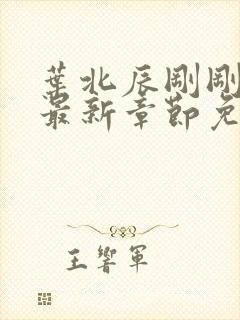 葉北辰剛剛
最新章節免
王響軍